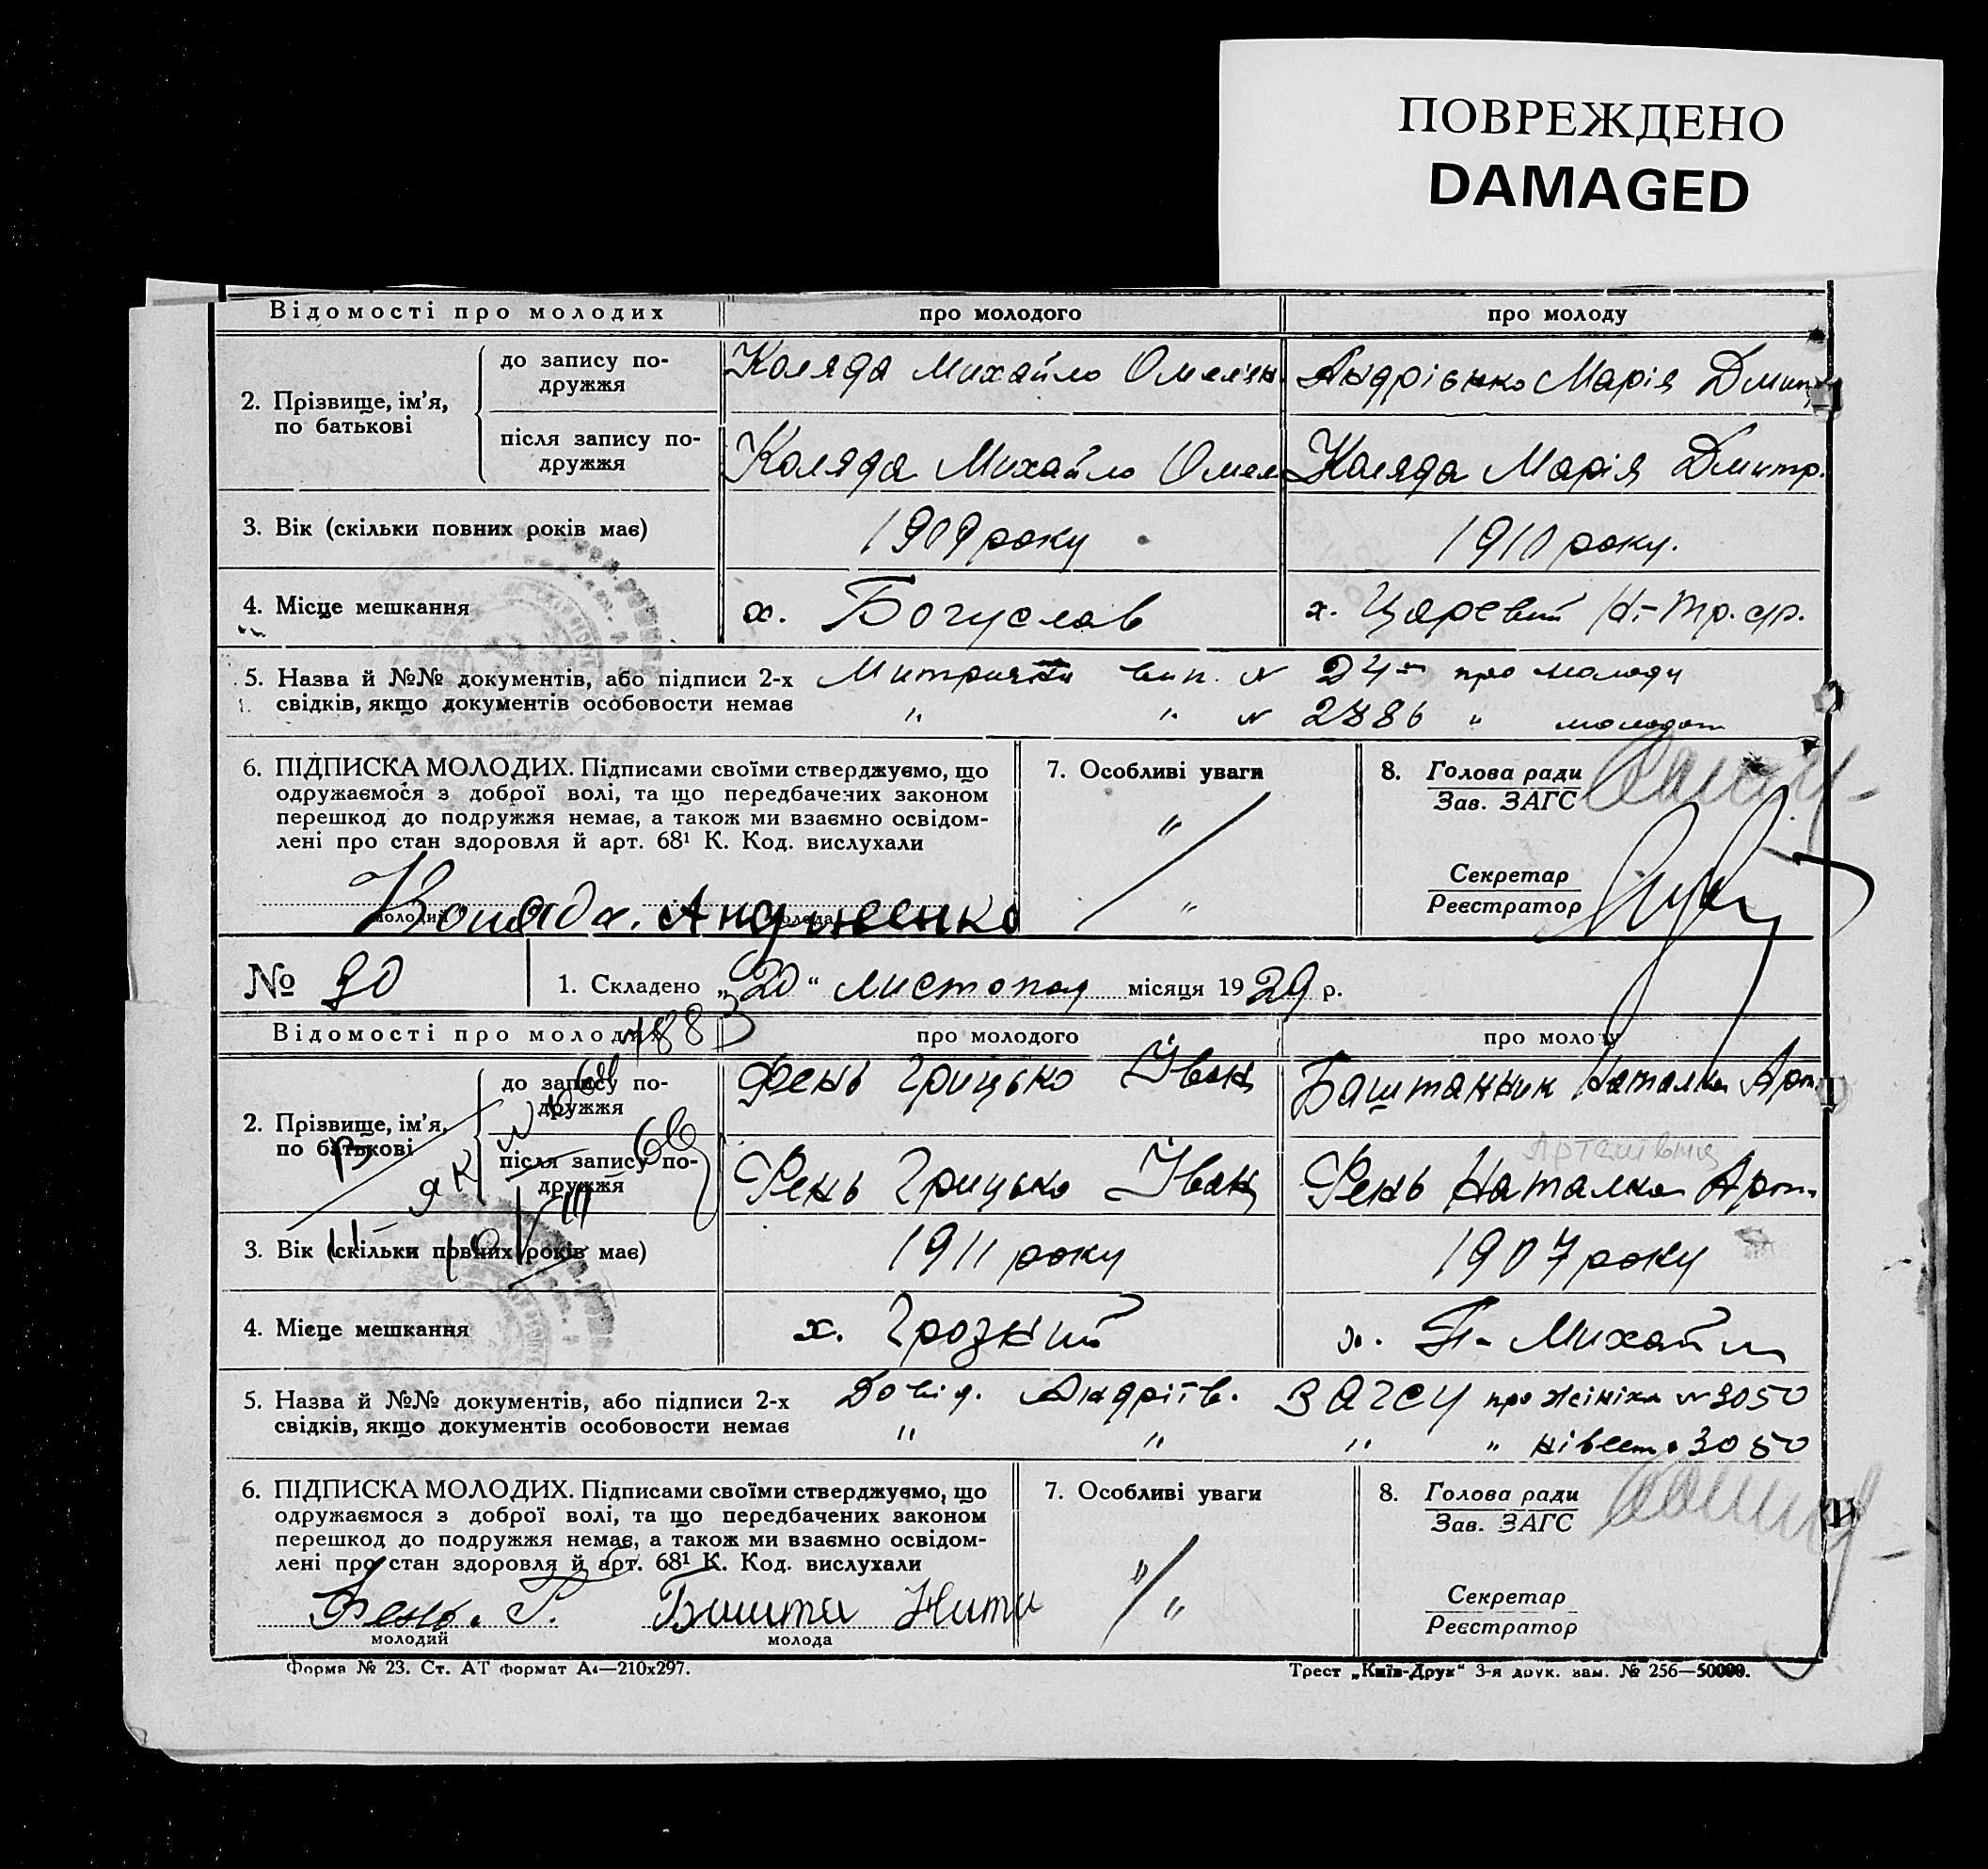 ПОВРЕЖДЕНО
DAMAGED
Відомості про молодих про молодого про молоду
2. Прізвище, ім'я, по батькові
до запису по-
дружжя
Коляда Михайло Омелян Андрієнко Марія Дмит
після запису по-
дружжя
Коляда Михайло Омел Коляда Марія Дмитр.
3. Вік (скільки повних років має) 1909 року 1910 року.
4. Місце мешкання х. Богуслав х. Царевий Н.-Тр. с/р.
5. Назва й №№ документів, або підписи 2-х вип. N 24 про молоду
свідків, якщо документів особовости немає " " N 2886 " молодог
6. ПІДПИСКА МОЛОДИХ. Підписами своїми стверджуємо, що
одружаємося з доброї волі, та що передбачених законом
перешкод до подружжя немає, а також ми взаємно освідом-
лені про стан здоровля й арт. 68¹ К. Код. вислухали
Коляда. Андриенко
молодий молода
7. Особливі уваги
" "
8. Голова ради
Зав. ЗАГС
Секретар
Реєстратор
№ 90 1. Складено „20“ листопад місяця 1929 р.
Відомості про молодих про молодого про молоду
2. Прізвище, ім'я,
по батькові
до запису по-
дружжя
Фень Грицько Іван Баштанник Наталка Арт.
Артемівна
після запису по-
дружжя
Фень Грицько Іван Фень Наталка Арт.
3. Вік (скільки повних років має) 1911 року 1907 року
4. Місце мешкання х. Грозний х. П-Михайл
5. Назва й №№ документів, або підписи 2-х Довід. Андріїв. ЗАГСу про жініха N 3050
свідків, якщо документів особовости немає " " " " нівест 3050
6. ПІДПИСКА МОЛОДИХ. Підписами своїми стверджуємо, що
одружаємося з доброї волі, та що передбачених законом
перешкод до подружжя немає, а також ми взаємно освідом-
лені про стан здоровля й арт. 68¹ К. Код. вислухали
Фень. Г. Башта
молодий молода
7. Особливі уваги
" "
8. Голова ради
Зав. ЗАГС
Секретар
Реєстратор
Форма № 23. Ст. АТ формат А4—210х297. Трест „Київ-Друк“ 3-я друк. зам. № 256—50000.